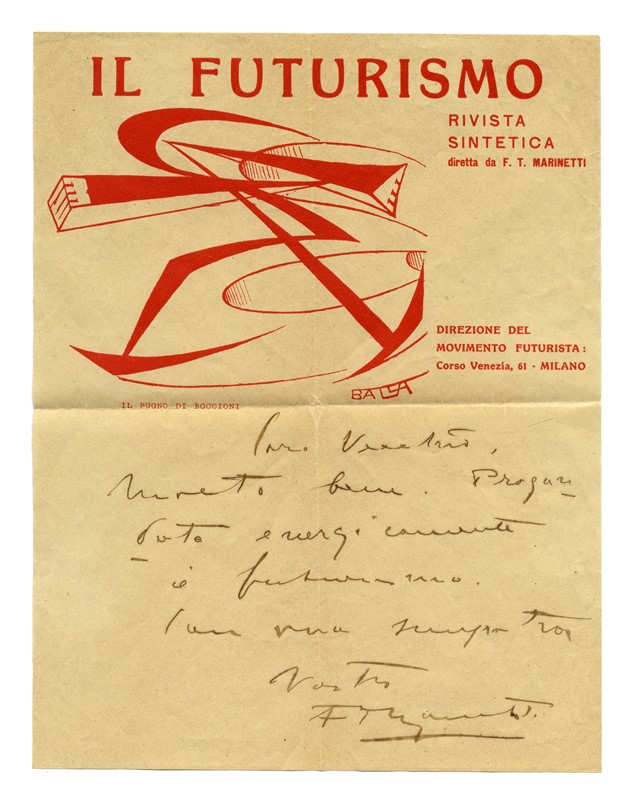 IL FUTURISMO
RIVISTA
SINTETICA
diretta da F. T. MARINETTI
DIREZIONE DEL
MOVIMENTO FUTURISTA:
Corso Venezia, 61 - MILANO
BALLA
IL PUGNO DI BOCCIONI
Caro Vecchio,
Molto bene. Propagan
date energicamente
il futurismo.
Con viva simpatia
Vostro
F T Marinetti.